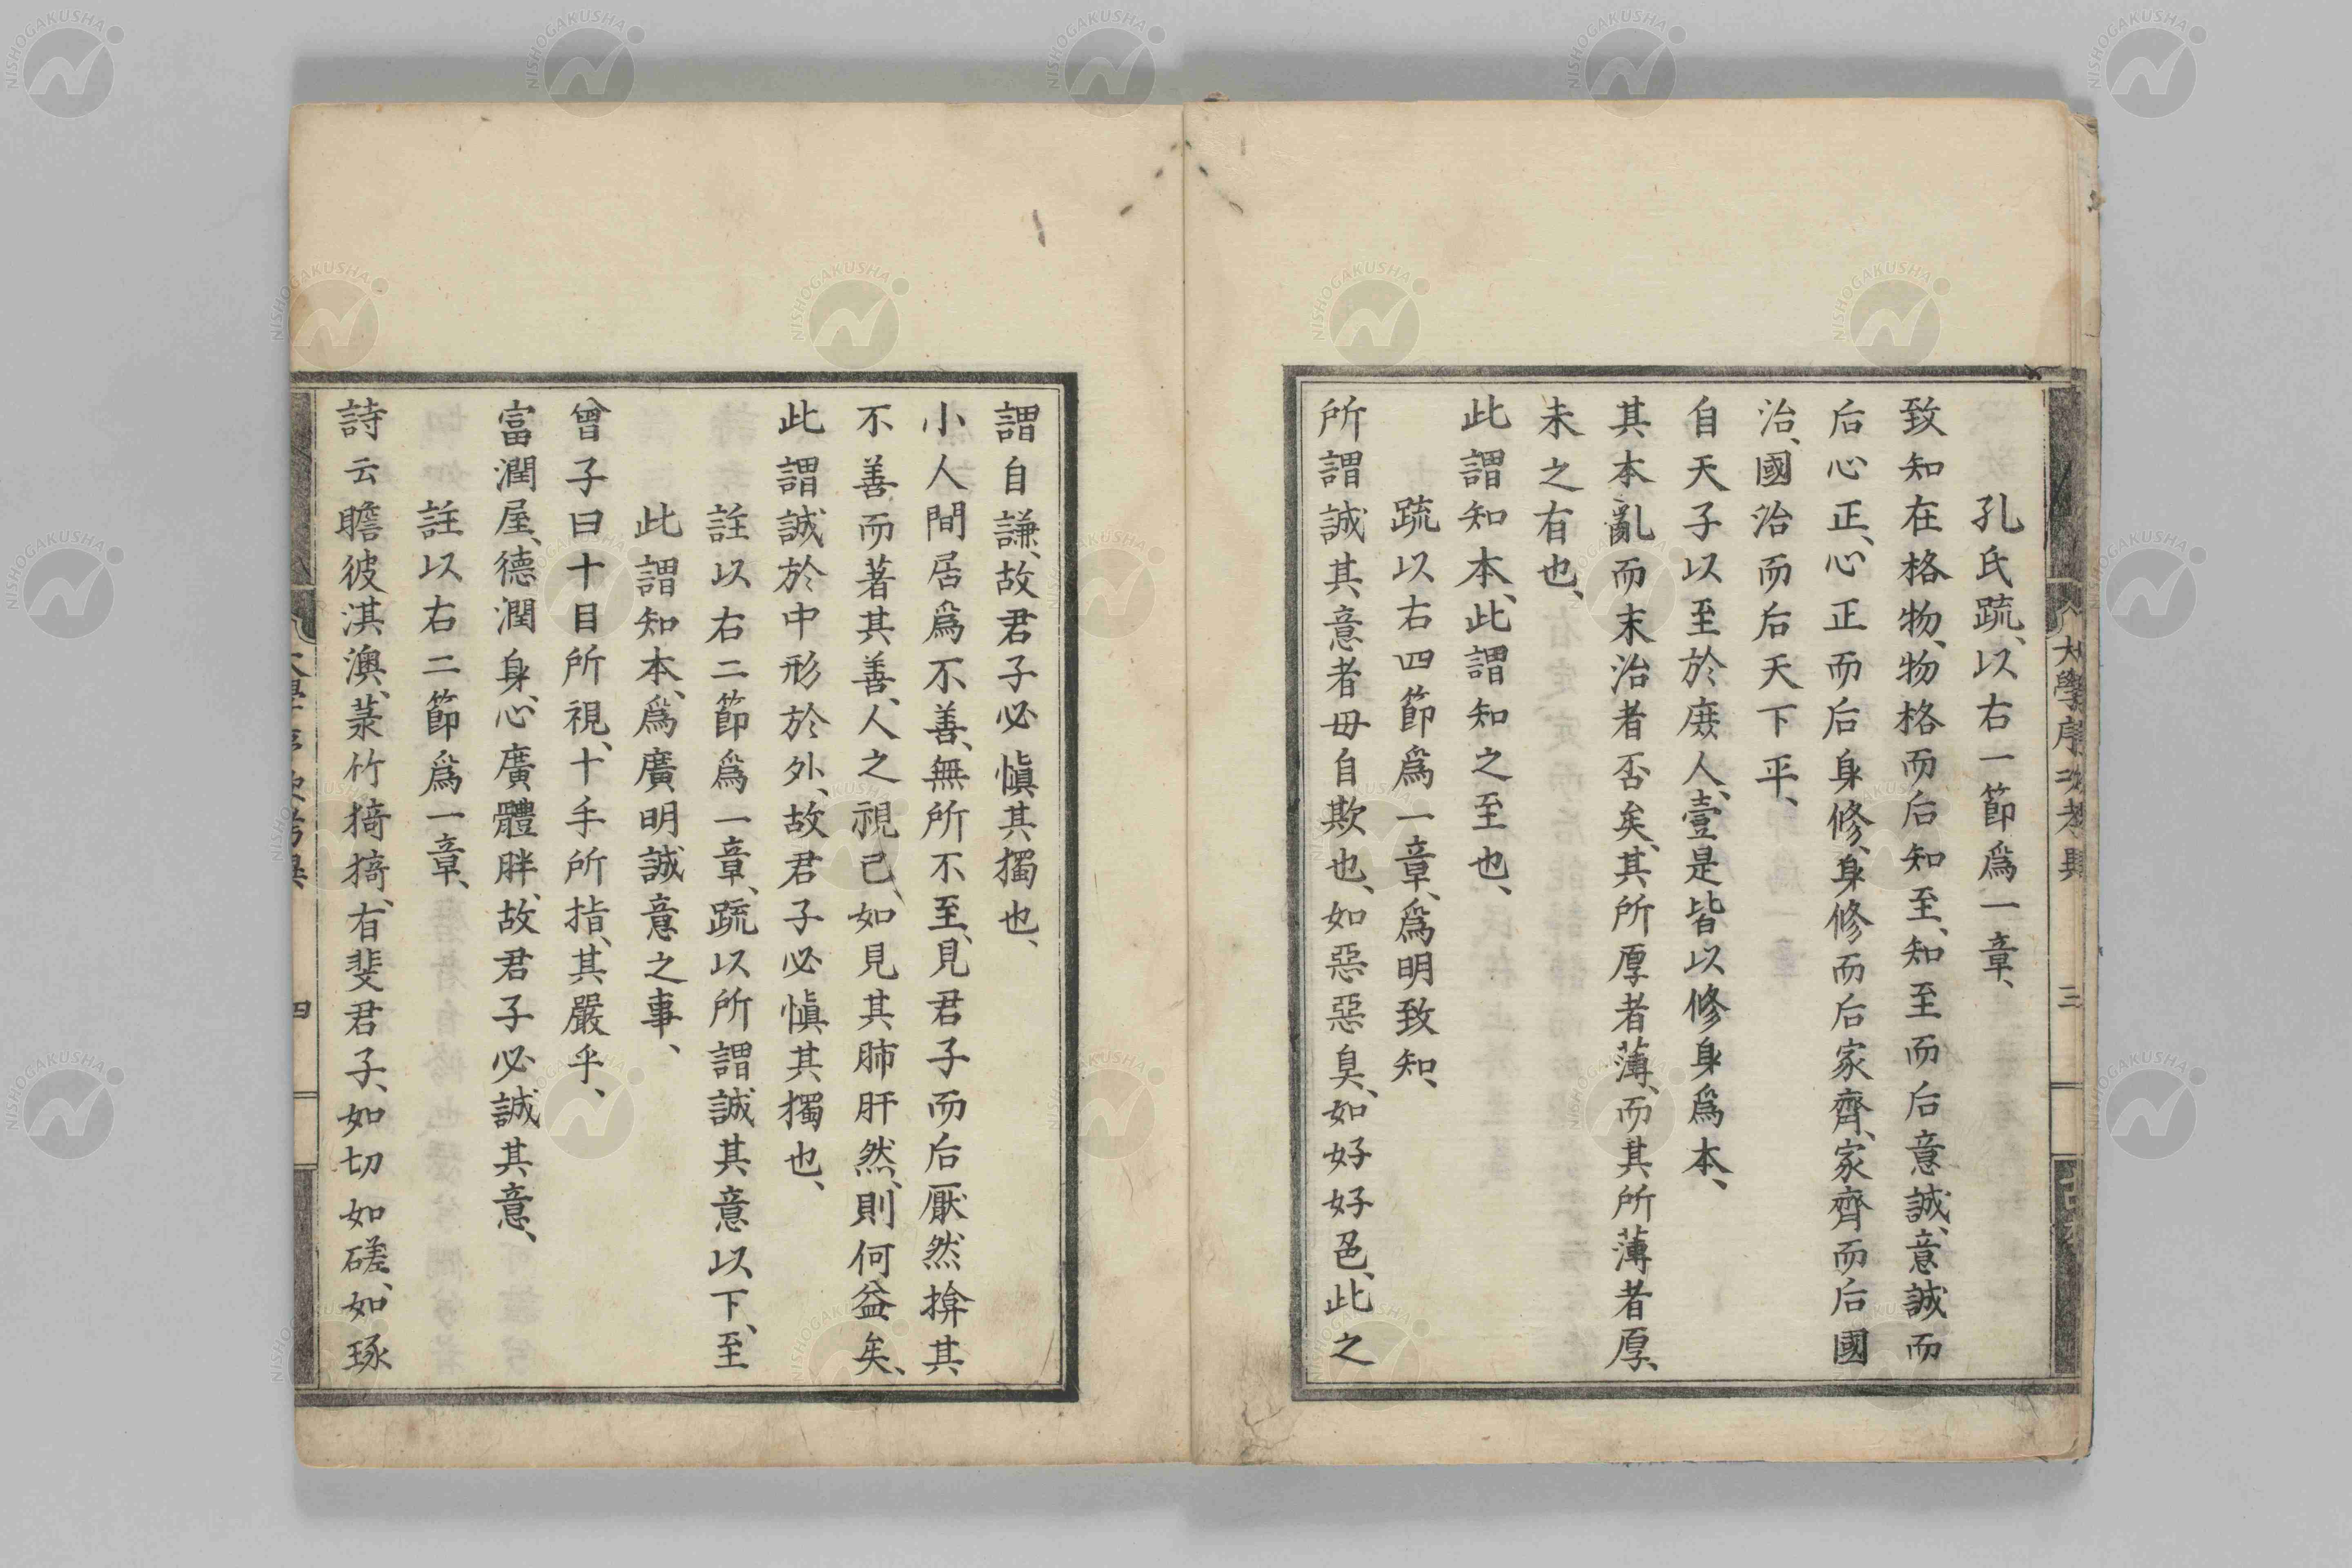 大學序次考異 三
孔氏疏、以右一節爲一章、
致知在格物、物格而后知至、知至而后意誠、意誠而
后心正、心正而后身修、身修而后家齊、家齊而后國
治、國治而后天下平、
自天子以至於庶人、壹是皆以修身爲本、
其本亂而末治者否矣、其所厚者薄、而其所薄者厚、
未之有也、
此謂知本、此謂知之至也、
疏以右四節爲一章、爲明致知、
所謂誠其意者毋自欺也、如惡惡臭、如好好色、此之
謂自謙、故君子必愼其獨也、
小人間居爲不善、無所不至、見君子而后厭然揜其
不善、而著其善、人之視己、如見其肺肝然、則何益矣、
此謂誠於中形於外、故君子必愼其獨也、
註以右二節爲一章、疏以所謂誠其意以下、至
此謂知本、爲廣明誠意之事、
曾子曰十目所視、十手所指、其嚴乎、
富潤屋、德潤身、心廣體胖、故君子必誠其意、
註以右二節爲一章、
詩云瞻彼淇澳、菉竹猗猗、有斐君子、如切如磋、如琢
大學序次考異 四
NISHOGAKUSHA